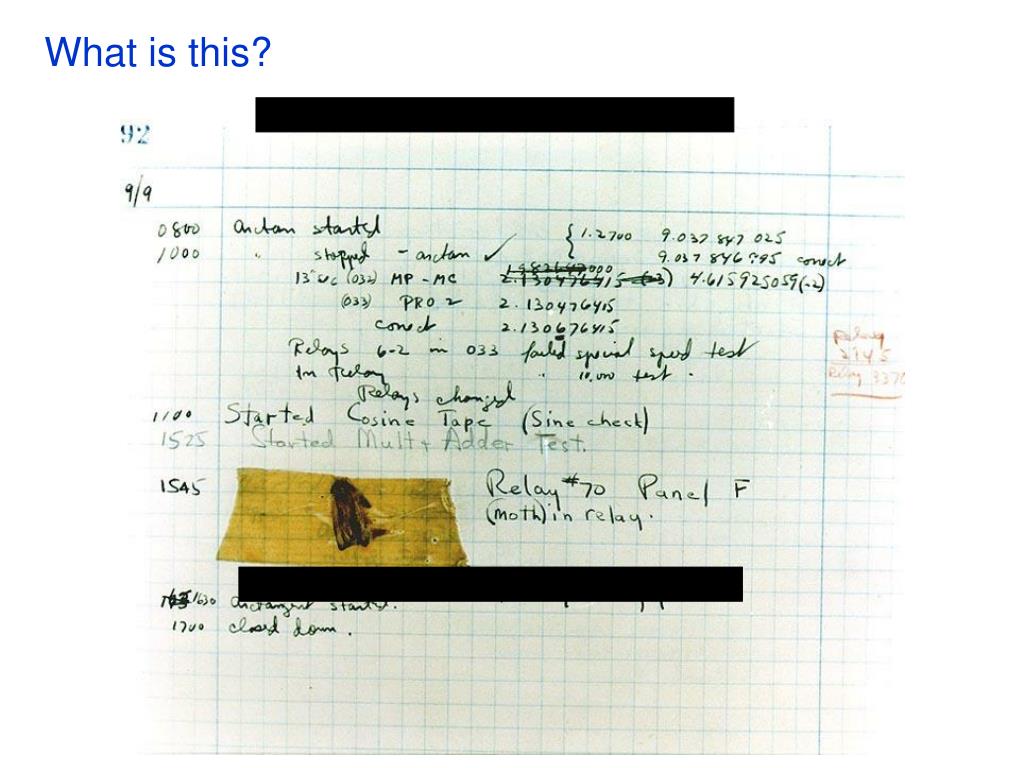 What is this?
92
9/9
0800 arctan started
1000 " stopped - arctan ✓
{ 1.2700 9.037 847 025
9.037 846 995 correct
13"uc (032) MP - MC 2.130476415 (-3) 4.615925059(-2)
(033) PRO 2 2.130476415
correct 2.130676415
Relays 6-2 in 033 failed special speed test
In relay " 10.000 test .
Relays changed
Relay
2145
Relay 3370
1100 Started Cosine Tape (Sine check)
1525 Started Mult + Adder Test.
1545 Relay #70 Panel F
(moth) in relay.
1630 arctangent started.
1700 closed down .